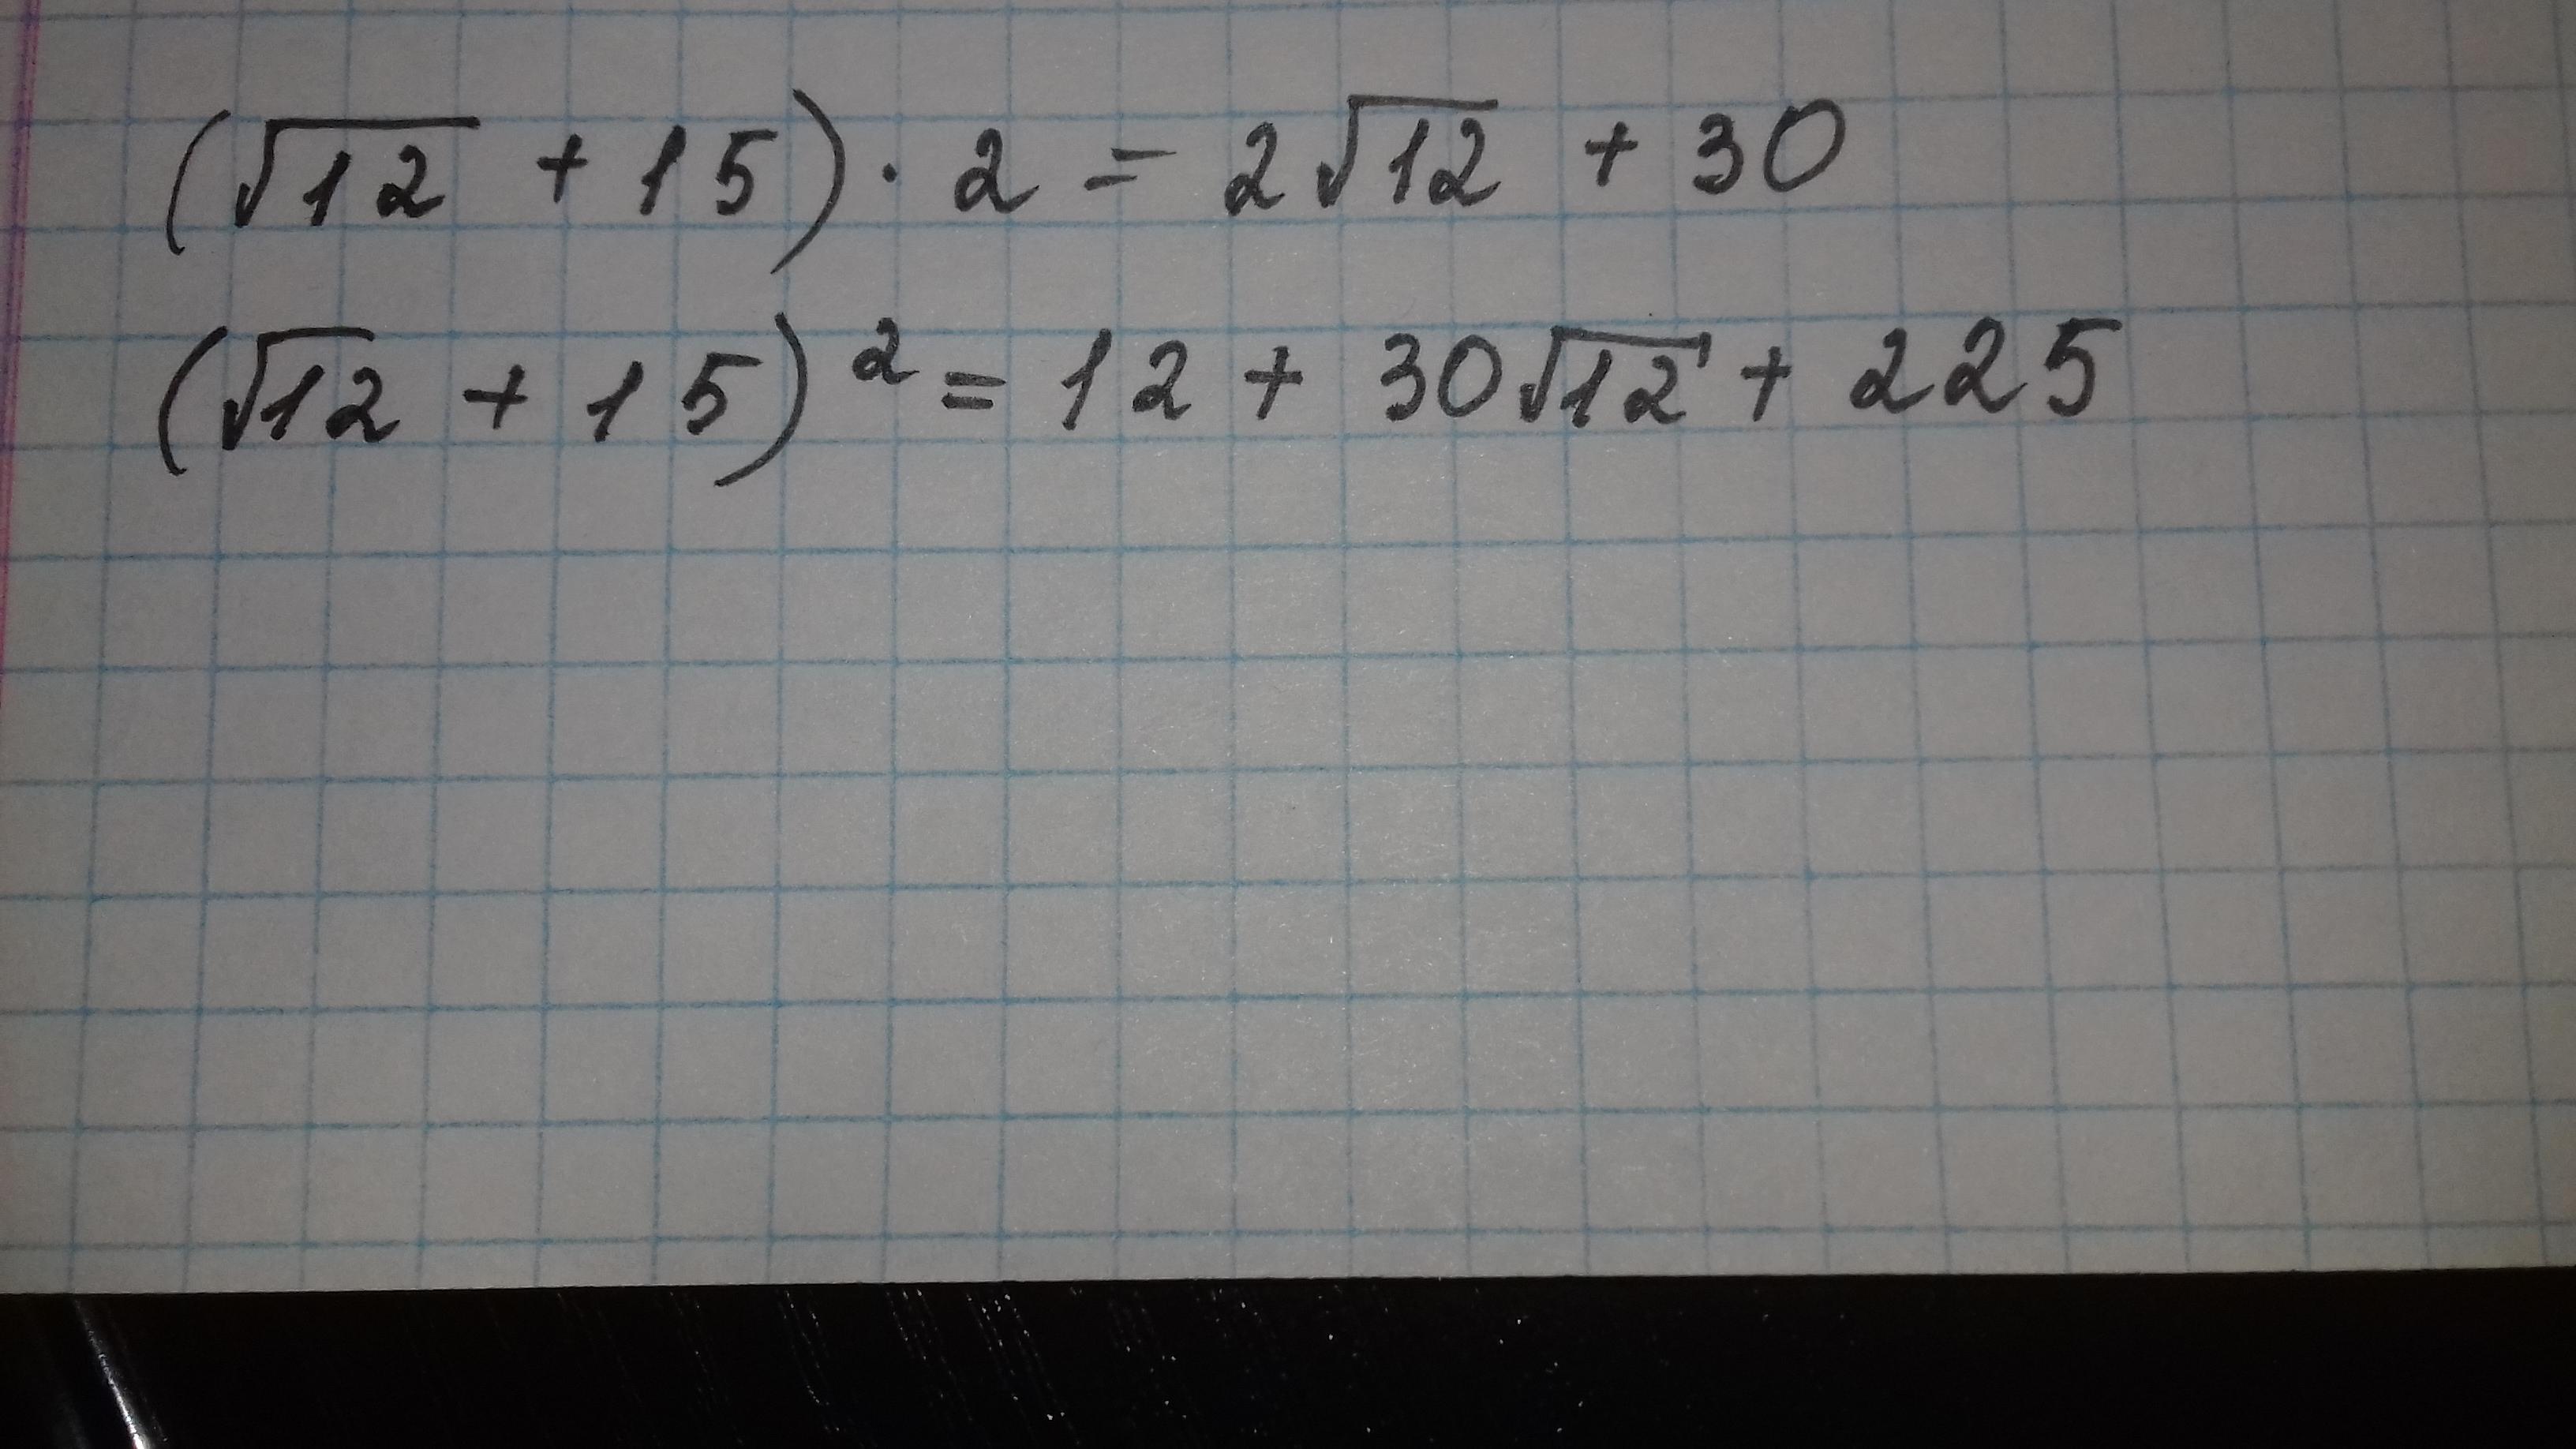 (√12 + 15) · 2 = 2√12 + 30
(√12 + 15)² = 12 + 30√12 + 225